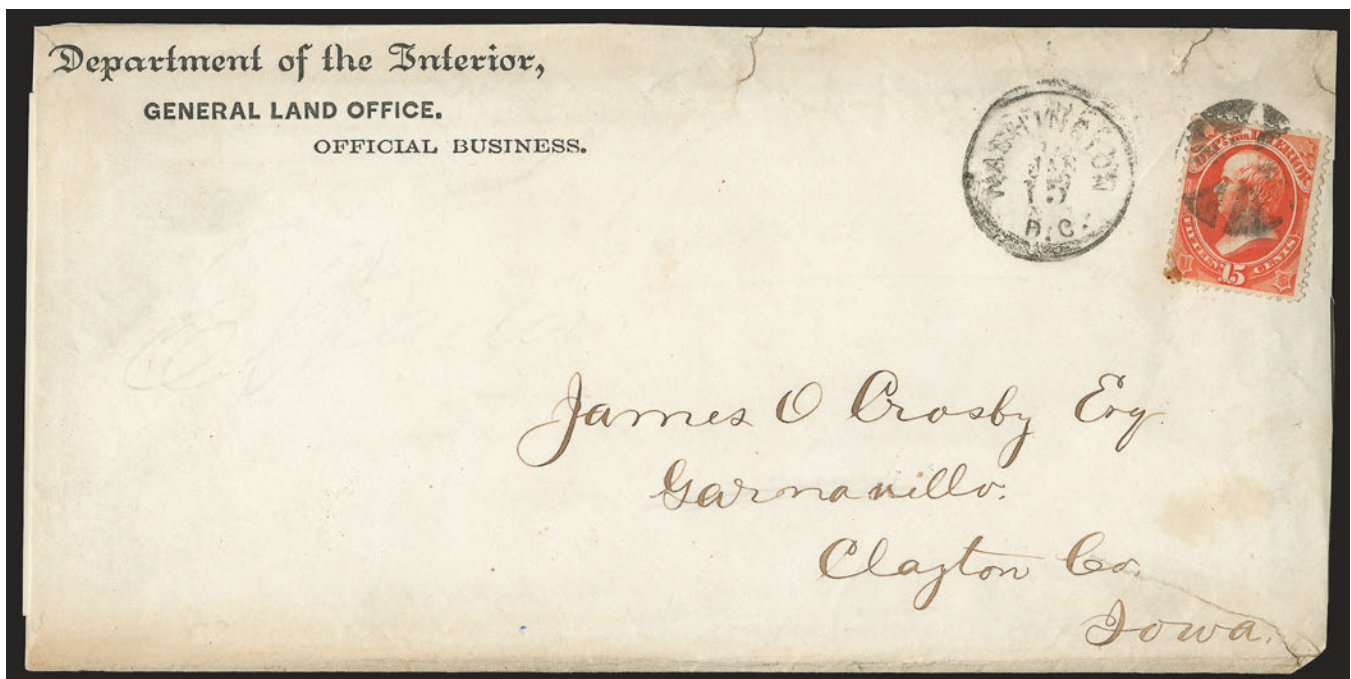 Department of the Interior,
GENERAL LAND OFFICE.
OFFICIAL BUSINESS.
WASHINGTON
JAN
15
D.C.
DEPT. FOR INTERIOR
FIFTEEN 15 CENTS
James O Crosby Esq.
Garnavillo.
Clayton Co.
Iowa.